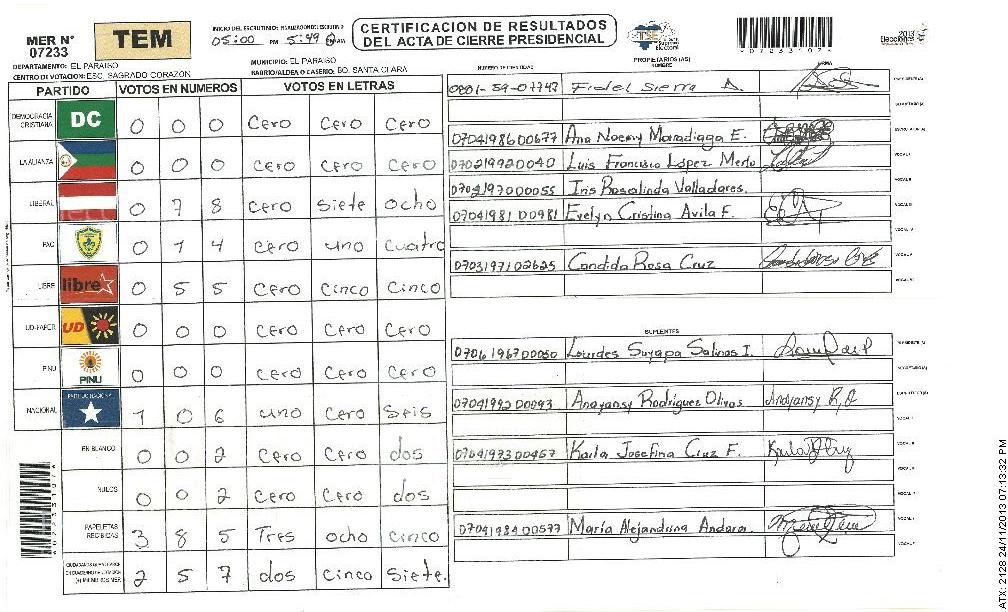 MER N° 07233
TEM
INICIO DEL ESCRUTINIO: 05:00 PM
5:49
CERTIFICACION DE RESULTADOS
DEL ACTA DE CIERRE PRESIDENCIAL
TSE
2013
Elecciones
DEPARTAMENTO: EL PARAISO
MUNICIPIO: EL PARAISO
CENTRO DE VOTACION: ESC. SAGRADO CORAZON
BARRIO/ALDEA O CASERIO: BO. SANTA CLARA
PARTIDO VOTOS EN NUMEROS VOTOS EN LETRAS
DEMOCRACIA CRISTIANA DC 0 0 0 Cero Cero Cero
LA ALIANZA 0 0 0 Cero Cero Cero
LIBERAL 0 7 8 Cero Siete ocho
PAC 0 1 4 Cero uno Cuatro
LIBRE libre 0 5 5 Cero Cinco Cinco
UD-FAPER UD 0 0 0 Cero Cero Cero
PINU PINU 0 0 0 Cero Cero Cero
NACIONAL PARTIDO NACIONAL 1 0 6 uno Cero Seis
EN BLANCO 0 0 2 Cero Cero dos
NULOS 0 0 2 Cero Cero dos
PAPELETAS RECIBIDAS 3 8 5 Tres ocho cinco
2 5 7 dos Cinco Siete.
PROPIETARIOS (AS)
NUMERO DE IDENTIDAD NOMBRE FIRMA
0801-59-07743 Fidel Sierra A.
0704198600677 Ana Noemy Maradiaga E.
07021992 0040 Luis Francisco López Merlo
0704197000055 Iris Rosalinda Valladares.
07041981 00981 Evelyn Cristina Avila F.
0703197102625 Candida Rosa Cruz
SUPLENTES
0706196700050 Lourdes Suyapa Salinas I.
07041992 00093 Anayansy Rodriguez Olivas Anayansy R,O
0704197300457 Karla Josefina Cruz F.
07041984 00577 María Alejandrina Andara.
ATX: 2128 24/11/2013 07:13:32 PM